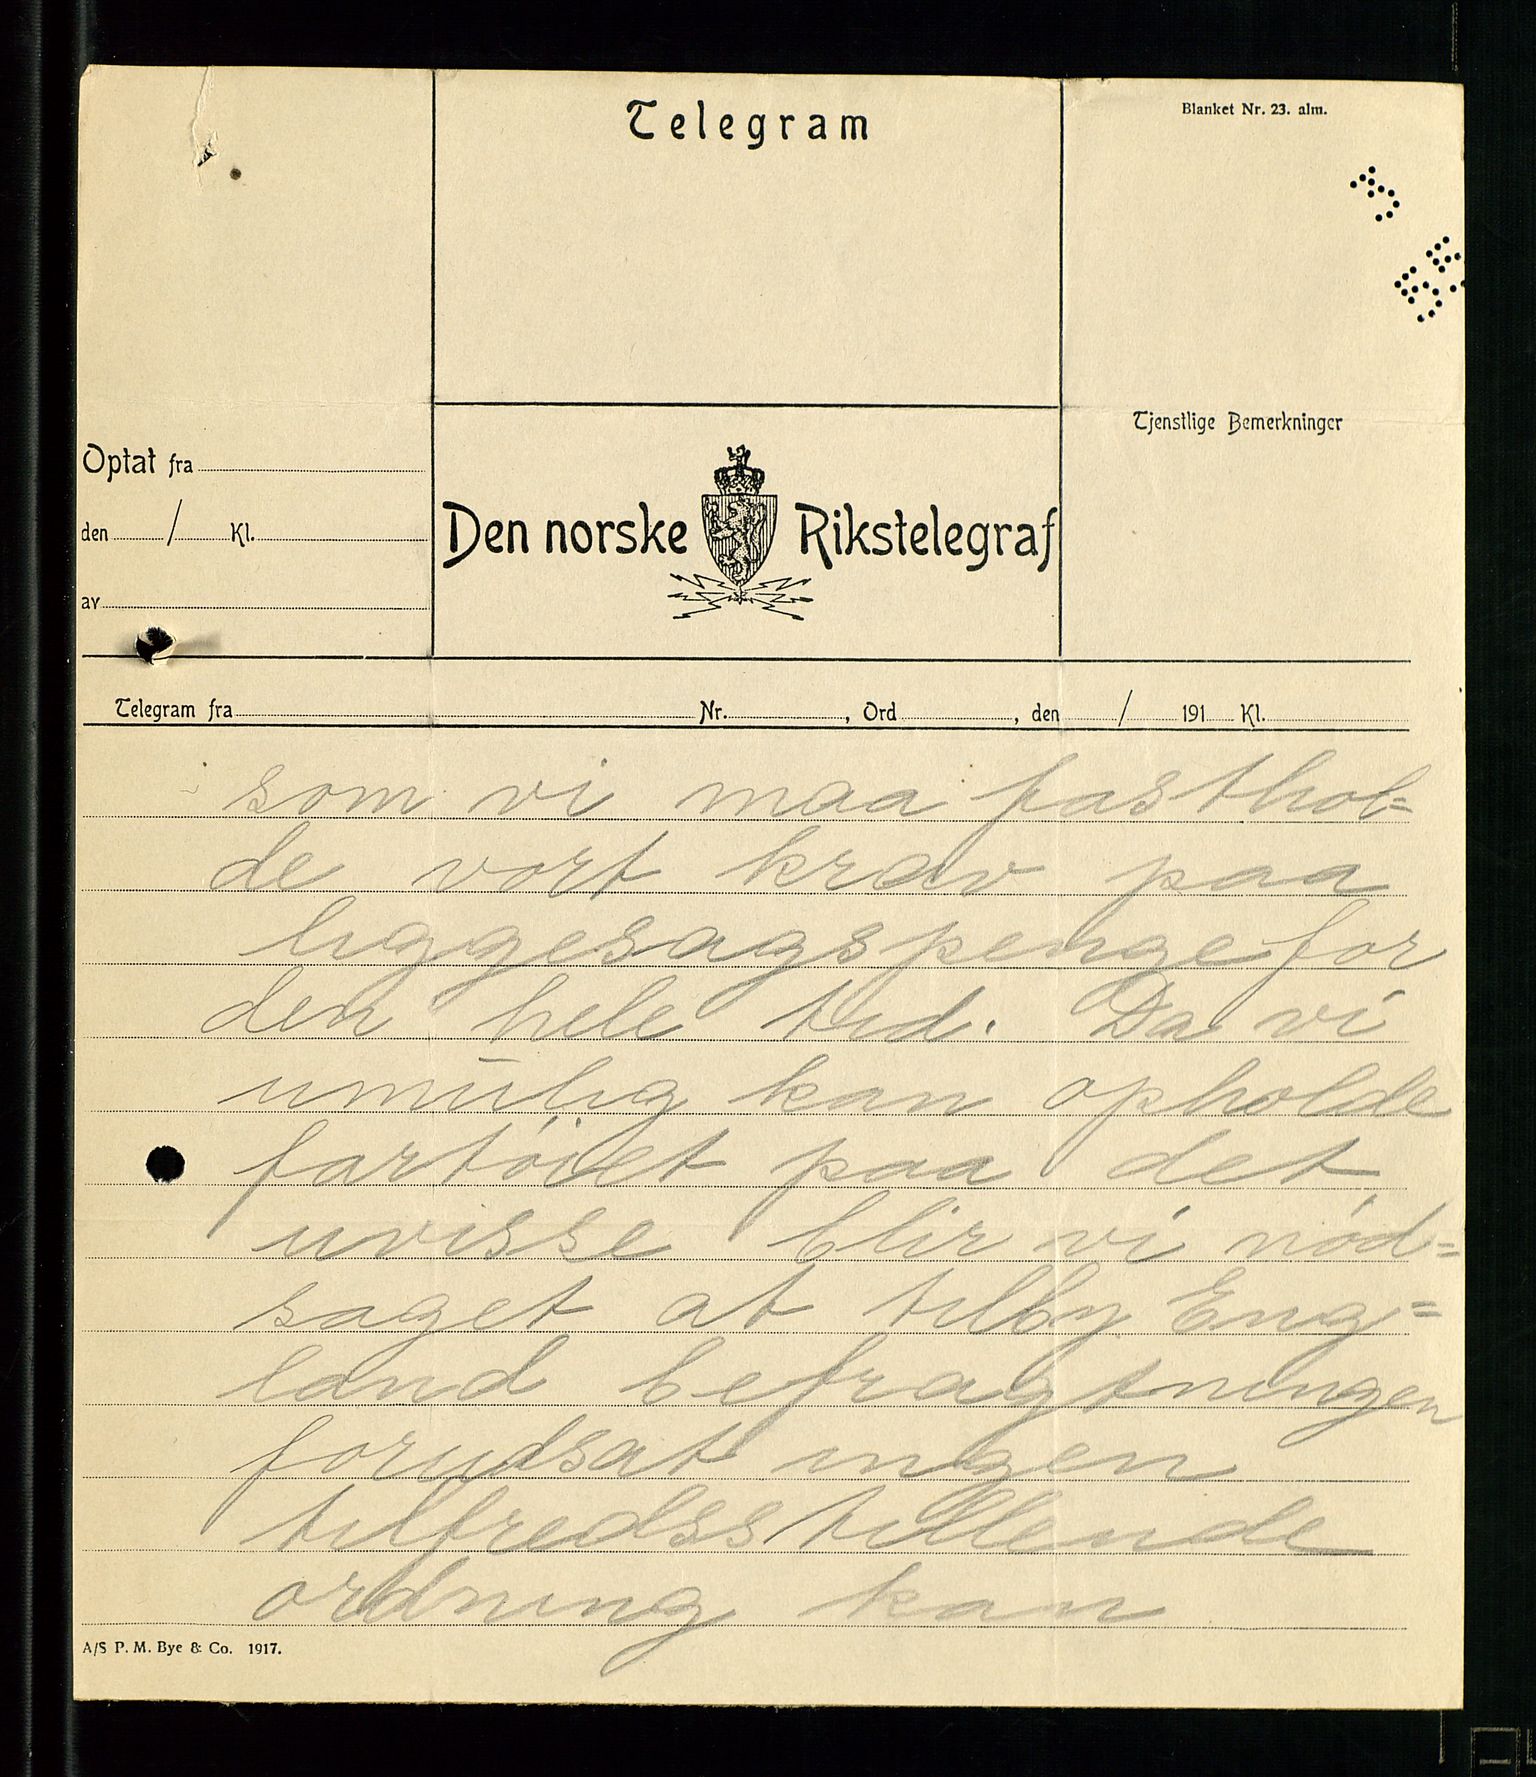 Telegram
Blanket Nr. 23. alm.
Tjenstlige Bemerkninger
Optat fra
den / Kl.
av
Den norske Rikstelegraf
Telegram fra Nr. , Ord , den / 191 Kl.
som vi maa fasthol=
de vort krav paa
liggesagspenge for
den hele tid. Da vi
umulig kan opholde
fartöiet paa det
uvisse blir vi nöd=
saget at tilby Eng=
land befragtningen
forudsat ingen
tilfredsstillende
ordning kan
A/S P. M. Bye & Co. 1917.